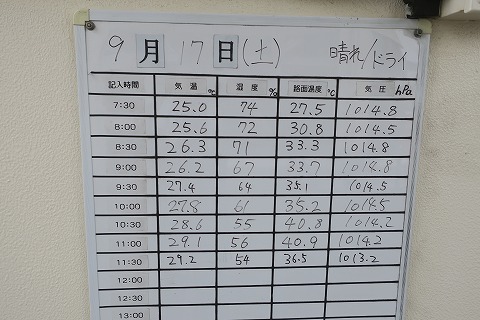 9月17日(土) 晴れ/ドライ
記入時間 気温 ℃ 湿度 % 路面温度 ℃ 気圧 hPa
7:30 25.0 74 27.5 1014.8
8:00 25.6 72 30.8 1014.5
8:30 26.3 71 33.3 1014.8
9:00 26.2 67 33.7 1014.8
9:30 27.4 64 35.1 1014.5
10:00 27.8 61 35.2 1014.5
10:30 28.6 55 40.8 1014.2
11:00 29.1 56 40.9 1014.2
11:30 29.2 54 36.5 1013.2
12:00
12:30
13:00